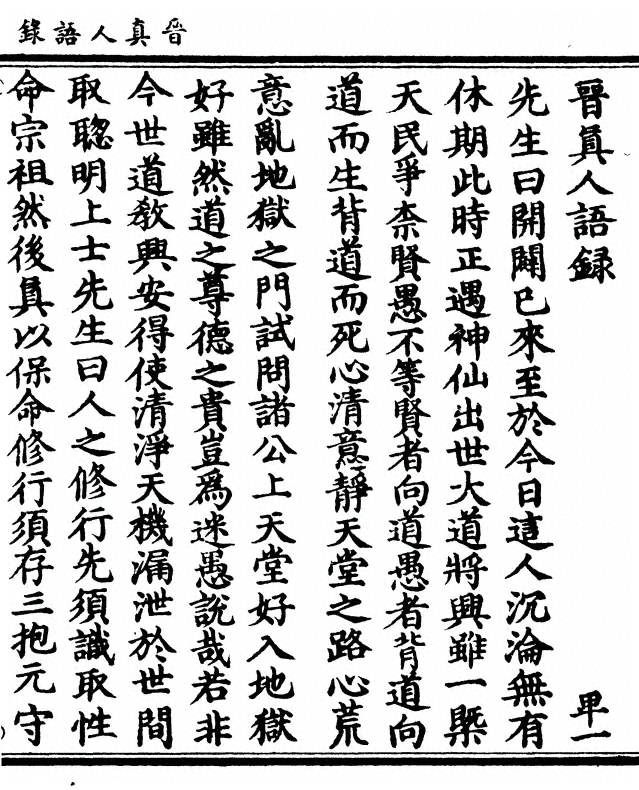 晉真人語錄
晉眞人語録
甲一
先生曰開闢已來至於今日這人沉淪無有
休期此時正遇神仙出世大道將興雖一槩
天民爭柰賢愚不等賢者向道愚者背道向
道而生背道而死心清意靜天堂之路心荒
意亂地獄之門試問諸公上天堂好入地獄
好雖然道之尊德之貴豈爲迷愚說哉若非
今世道敎興安得使清淨天機漏泄於世間
取聦明上士先生曰人之修行先須識取性
命宗祖然後眞以保命修行須存三抱元守